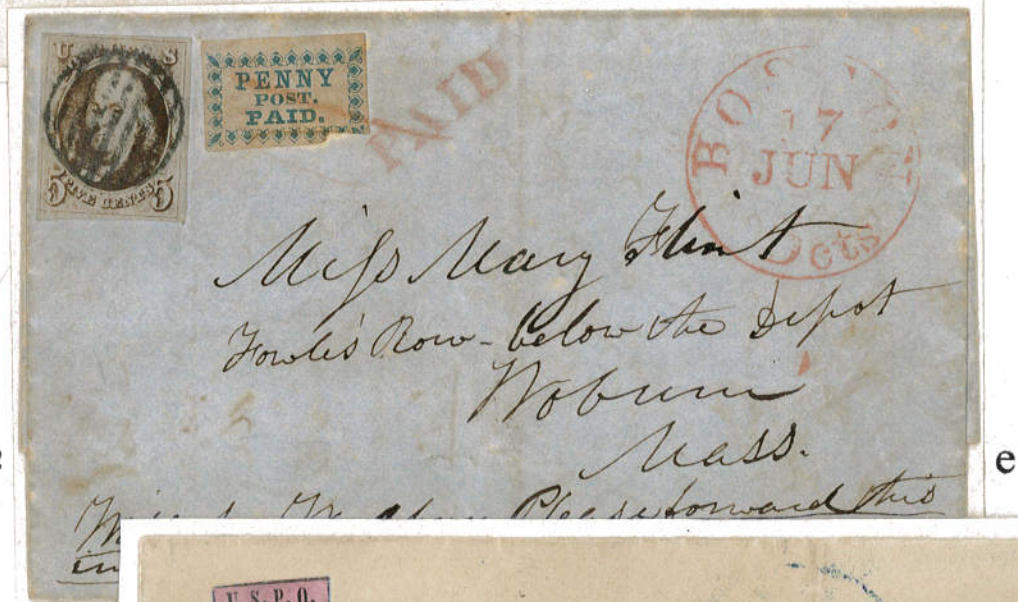 U S
5 FIVE CENTS 5
PENNY
POST.
PAID.
PAID
BOSTON
17
JUN
cts
Miss Mary Flint
Fowle's Row - below the Depot
Woburn
Mass.
Please forward this
e
U.S.P.O.